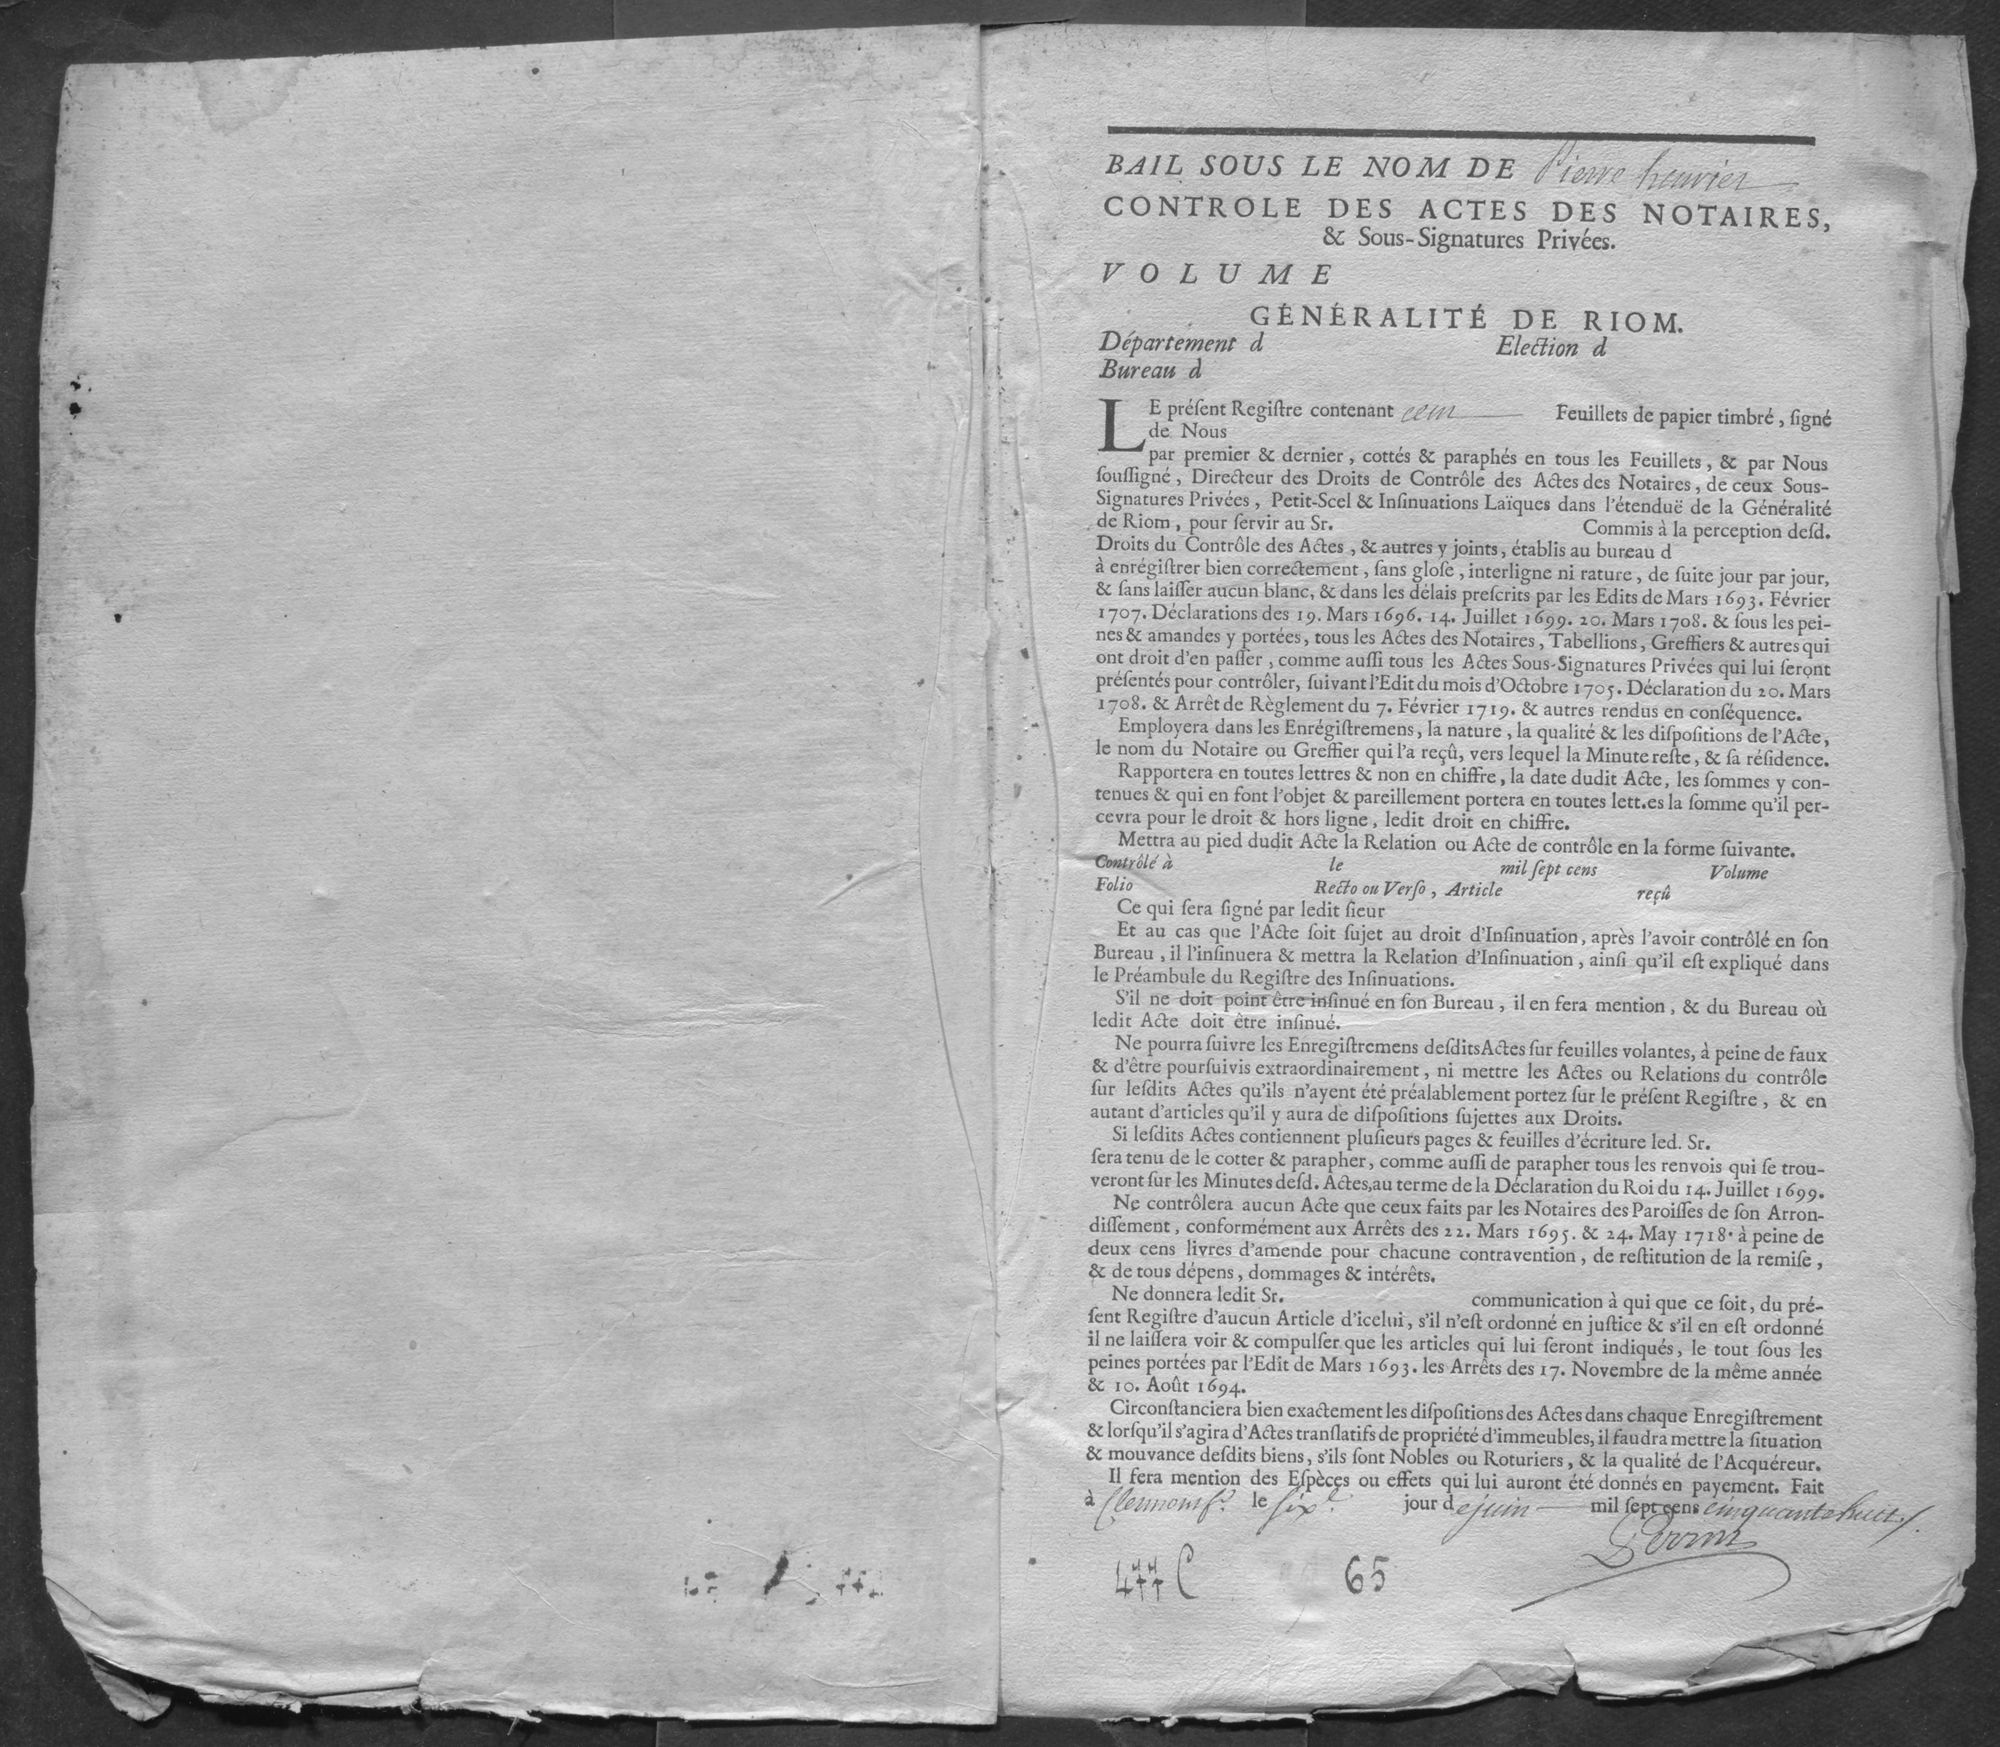 BAIL SOUS LE NOM DE Pierre henriet
CONTROLE DES ACTES DES NOTAIRES,
& Sous-Signatures Privées.
VOLUME
GÉNÉRALITÉ DE RIOM.
Département d Election d
Bureau d
LE préſent Regiſtre contenant cent Feuillets de papier timbré, ſigné
de Nous
par premier & dernier, cottés & paraphés en tous les Feuillets, & par Nous
ſouſſigné, Directeur des Droits de Contrôle des Actes des Notaires, de ceux Sous-
Signatures Privées, Petit-Scel & Inſinuations Laïques dans l'étenduë de la Généralité
de Riom, pour ſervir au Sr. Commis à la perception deſd.
Droits du Contrôle des Actes, & autres y joints, établis au bureau d
à enrégiſtrer bien correctement, ſans gloſe, interligne ni rature, de ſuite jour par jour,
& ſans laiſſer aucun blanc, & dans les délais preſcrits par les Edits de Mars 1693. Février
1707. Déclarations des 19. Mars 1696. 14. Juillet 1699. 20. Mars 1708. & ſous les pei-
nes & amandes y portées, tous les Actes des Notaires, Tabellions, Greffiers & autres qui
ont droit d'en paſſer, comme auſſi tous les Actes Sous-Signatures Privées qui lui ſeront
préſentés pour contrôler, ſuivant l'Edit du mois d'Octobre 1705. Déclaration du 20. Mars
1708. & Arrêt de Règlement du 7. Février 1719. & autres rendus en conſéquence.
Employera dans les Enrégiſtremens, la nature, la qualité & les diſpoſitions de l'Acte,
le nom du Notaire ou Greffier qui l'a reçû, vers lequel la Minute reſte, & ſa réſidence.
Rapportera en toutes lettres & non en chiffre, la date dudit Acte, les ſommes y con-
tenues & qui en font l'objet & pareillement portera en toutes lett.es la ſomme qu'il per-
cevra pour le droit & hors ligne, ledit droit en chiffre.
Mettra au pied dudit Acte la Relation ou Acte de contrôle en la forme ſuivante.
Contrôlé à le mil ſept cens Volume
Folio Recto ou Verſo, Article reçû
Ce qui ſera ſigné par ledit ſieur
Et au cas que l'Acte ſoit ſujet au droit d'Inſinuation, après l'avoir contrôlé en ſon
Bureau, il l'inſinuera & mettra la Relation d'Inſinuation, ainſi qu'il eſt expliqué dans
le Préambule du Regiſtre des Inſinuations.
S'il ne doit point être inſinué en ſon Bureau, il en fera mention, & du Bureau où
ledit Acte doit être inſinué.
Ne pourra ſuivre les Enregiſtremens deſdits Actes ſur feuilles volantes, à peine de faux
& d'être pourſuivis extraordinairement, ni mettre les Actes ou Relations du contrôle
ſur leſdits Actes qu'ils n'ayent été préalablement portez ſur le préſent Regiſtre, & en
autant d'articles qu'il y aura de diſpoſitions ſujettes aux Droits.
Si leſdits Actes contiennent pluſieurs pages & feuilles d'écriture led. Sr.
ſera tenu de le cotter & parapher, comme auſſi de parapher tous les renvois qui ſe trou-
veront ſur les Minutes deſd. Actes, au terme de la Déclaration du Roi du 14. Juillet 1699.
Ne contrôlera aucun Acte que ceux faits par les Notaires des Paroiſſes de ſon Arron-
diſſement, conformément aux Arrêts des 22. Mars 1695. & 24. May 1718. à peine de
deux cens livres d'amende pour chacune contravention, de reſtitution de la remiſe,
& de tous dépens, dommages & intérêts.
Ne donnera ledit Sr. communication à qui que ce ſoit, du pré-
ſent Regiſtre d'aucun Article d'icelui, s'il n'eſt ordonné en juſtice & s'il en eſt ordonné
il ne laiſſera voir & compulſer que les articles qui lui ſeront indiqués, le tout ſous les
peines portées par l'Edit de Mars 1693. les Arrêts des 17. Novembre de la même année
& 10. Août 1694.
Circonſtanciera bien exactement les diſpoſitions des Actes dans chaque Enregiſtrement
& lorſqu'il s'agira d'Actes tranſlatifs de propriété d'immeubles, il faudra mettre la ſituation
& mouvance deſdits biens, s'ils ſont Nobles ou Roturiers, & la qualité de l'Acquéreur.
Il fera mention des Eſpèces ou effets qui lui auront été donnés en payement. Fait
à Clermont fd. le ſixe. jour de juin mil ſept cens cinquante huit./.
477 C 65